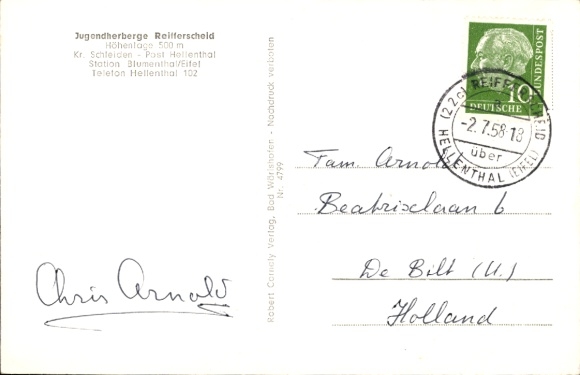 Jugendherberge Reifferscheid
Höhenlage 500 m
Kr. Schleiden - Post Hellenthal
Station Blumenthal/Eifel
Telefon Hellenthal 102
Chris Arnold
Robert Carnaty Verlag, Bad Wörishofen - Nachdruck verboten
Nr. 4799
10
DEUTSCHE BUNDESPOST
(22c) REIFFERSCHEID
a
-2.7.58-18
über
HELLENTHAL (EIFEL)
Fam. Arnold
Beatrixlaan 6
De Bilt (U.)
Holland